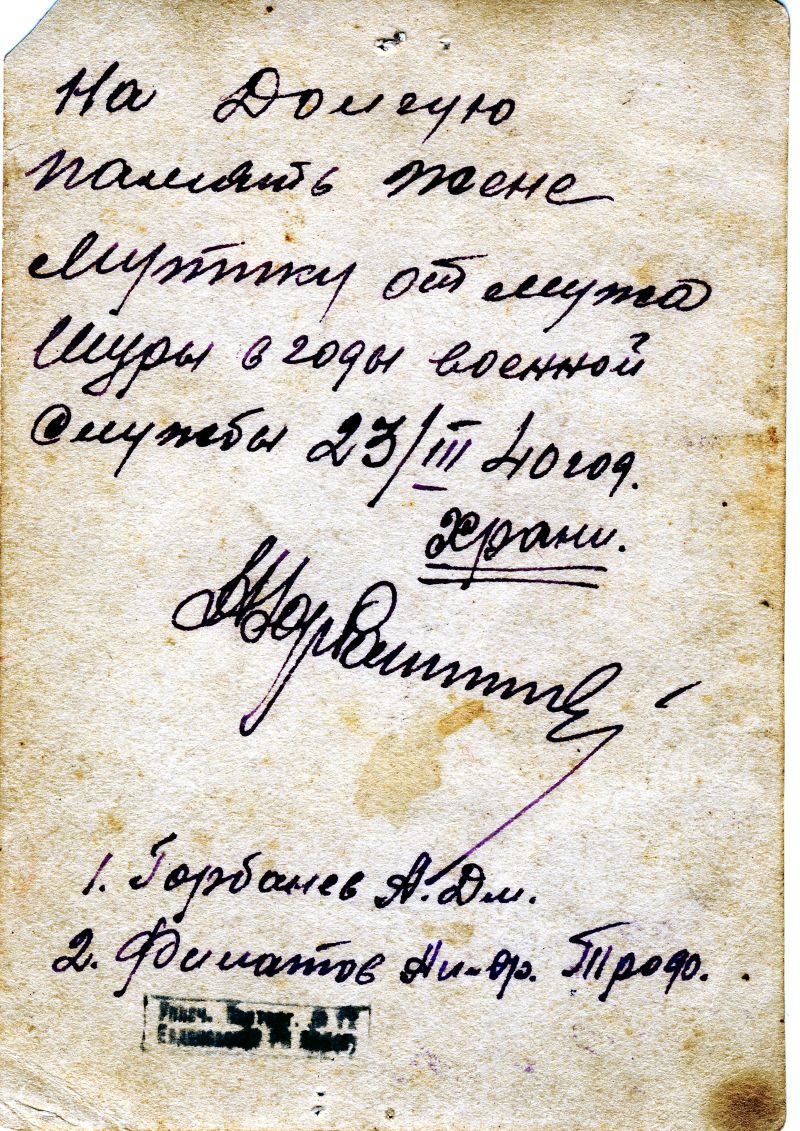 На Долгую
память жене
от мужа
Шуры в годы военной
Службы 23/III 40 год.
Храни.
1. Горбанев А. Дм.
2. Филатов Трофо.